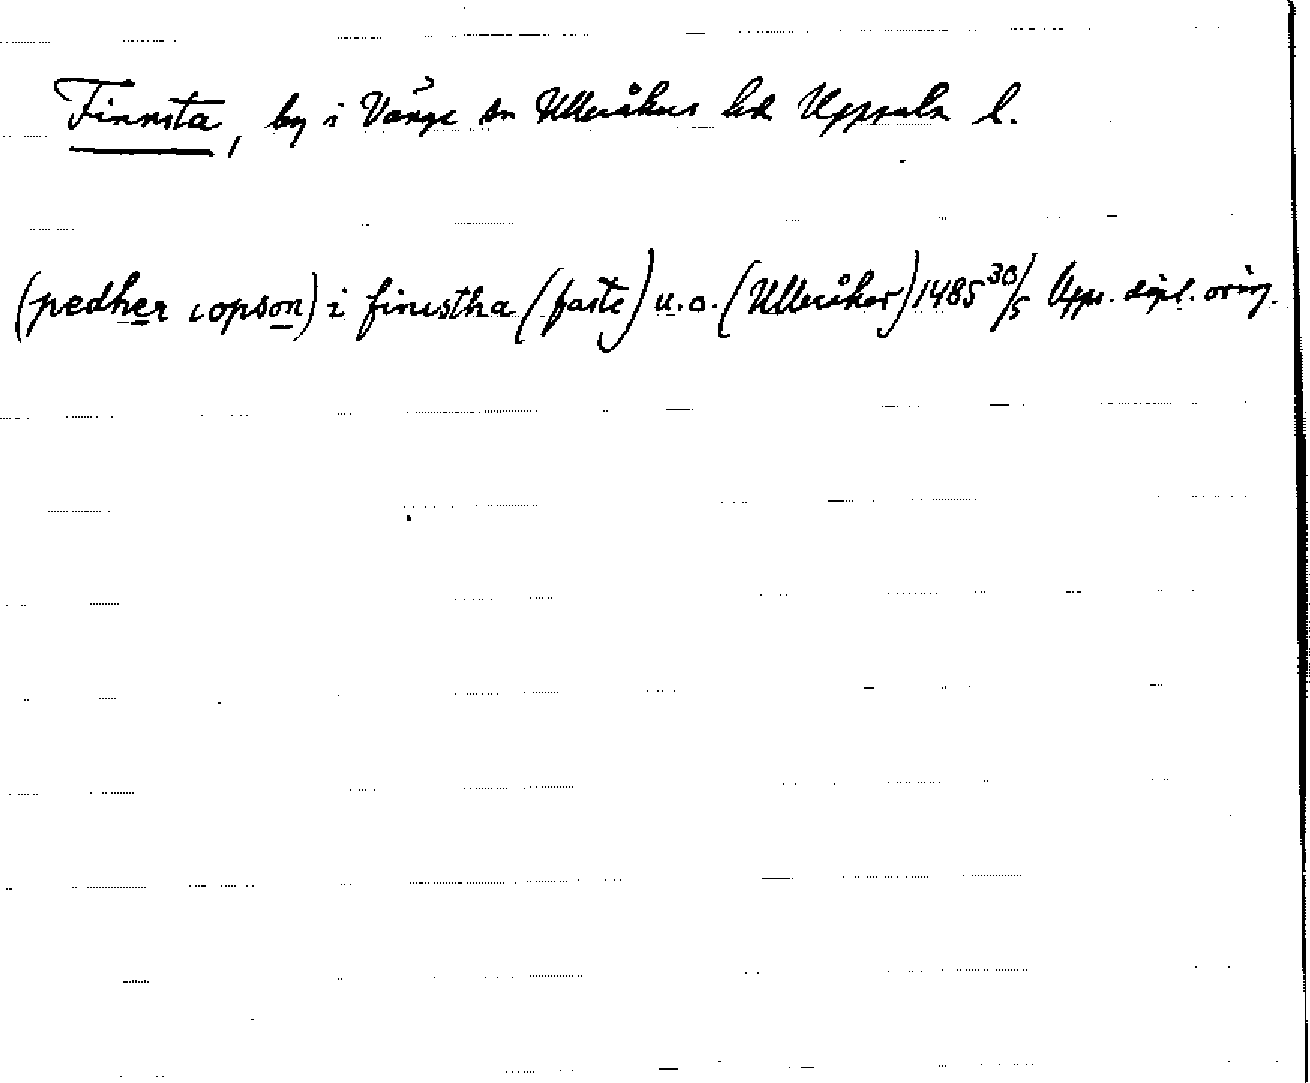 Finnsta, by i Vänge sn Ulleråkers hd Uppsala l.
(pedher iopson) i finistha (faste) u.o. (Ulleråker) 1485 30/5 Upps. dipl. orig.